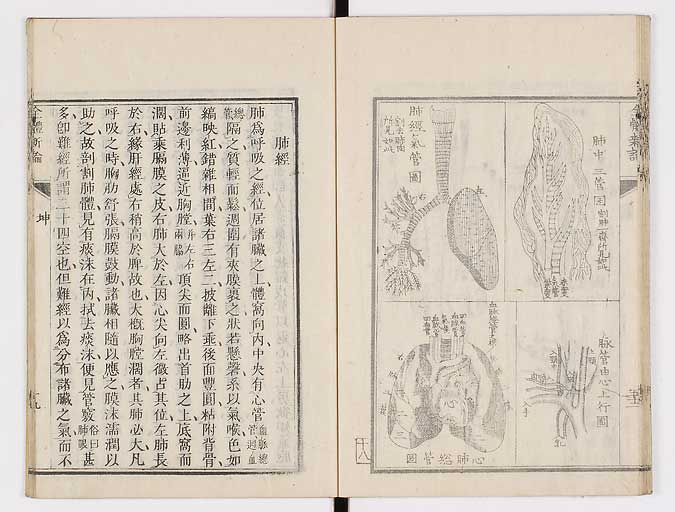 肺中三管圖
肺經氣管圖
脉管由心上行圖
心肺總管圖
心
肺經
肺爲呼吸之經位居諸臟之上體窩向内中央有心管
隔之質輕而鬆週圍有夾膜裹之狀若懸磬系以氣喉色如
縞映紅錯雜相間葉右三左二披離下垂後面豐圓粘附背骨
前邊利薄逼近胸膛
頂尖而圓略出首肋之上底窩而
濶貼乘膈膜之皮右肺大於左因心尖向左微占其位左肺長
於右緣肝經處右稍高於脾故也大概胸膛濶者其肺必大凡
呼吸之時胸肋舒張膈膜鼓動諸臟相隨以應之膜沫濡潤以
助之故剖割肺體見有痰沫在内拭去痰沫便見管竅俗曰肺眼甚
多卽難經所謂二十四空也但難經以爲分布諸臟之氣而不
全體新論
坤